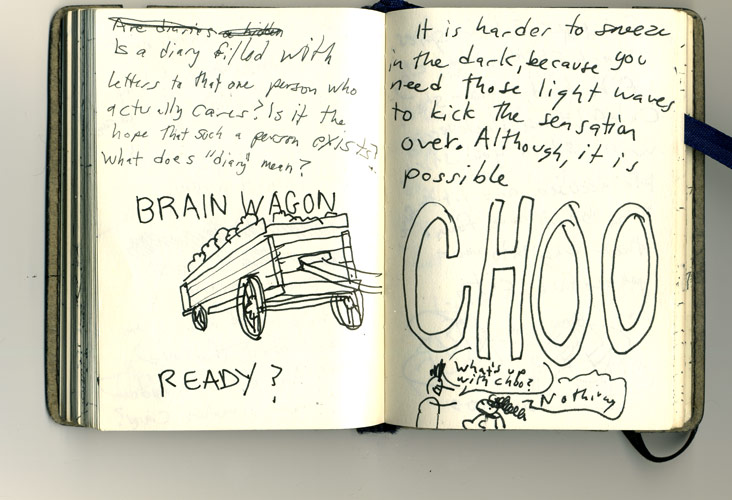 Are diaries a hidden
Is a diary filled with
letters to that one person who
actually cares? Is it the
hope that such a person exists?
What does "diary" mean?
BRAIN WAGON
READY?
It is harder to sneeze
in the dark, because you
need those light waves
to kick the sensation
over. Although, it is
possible
CHOO
What's up
with choo?
Nothing